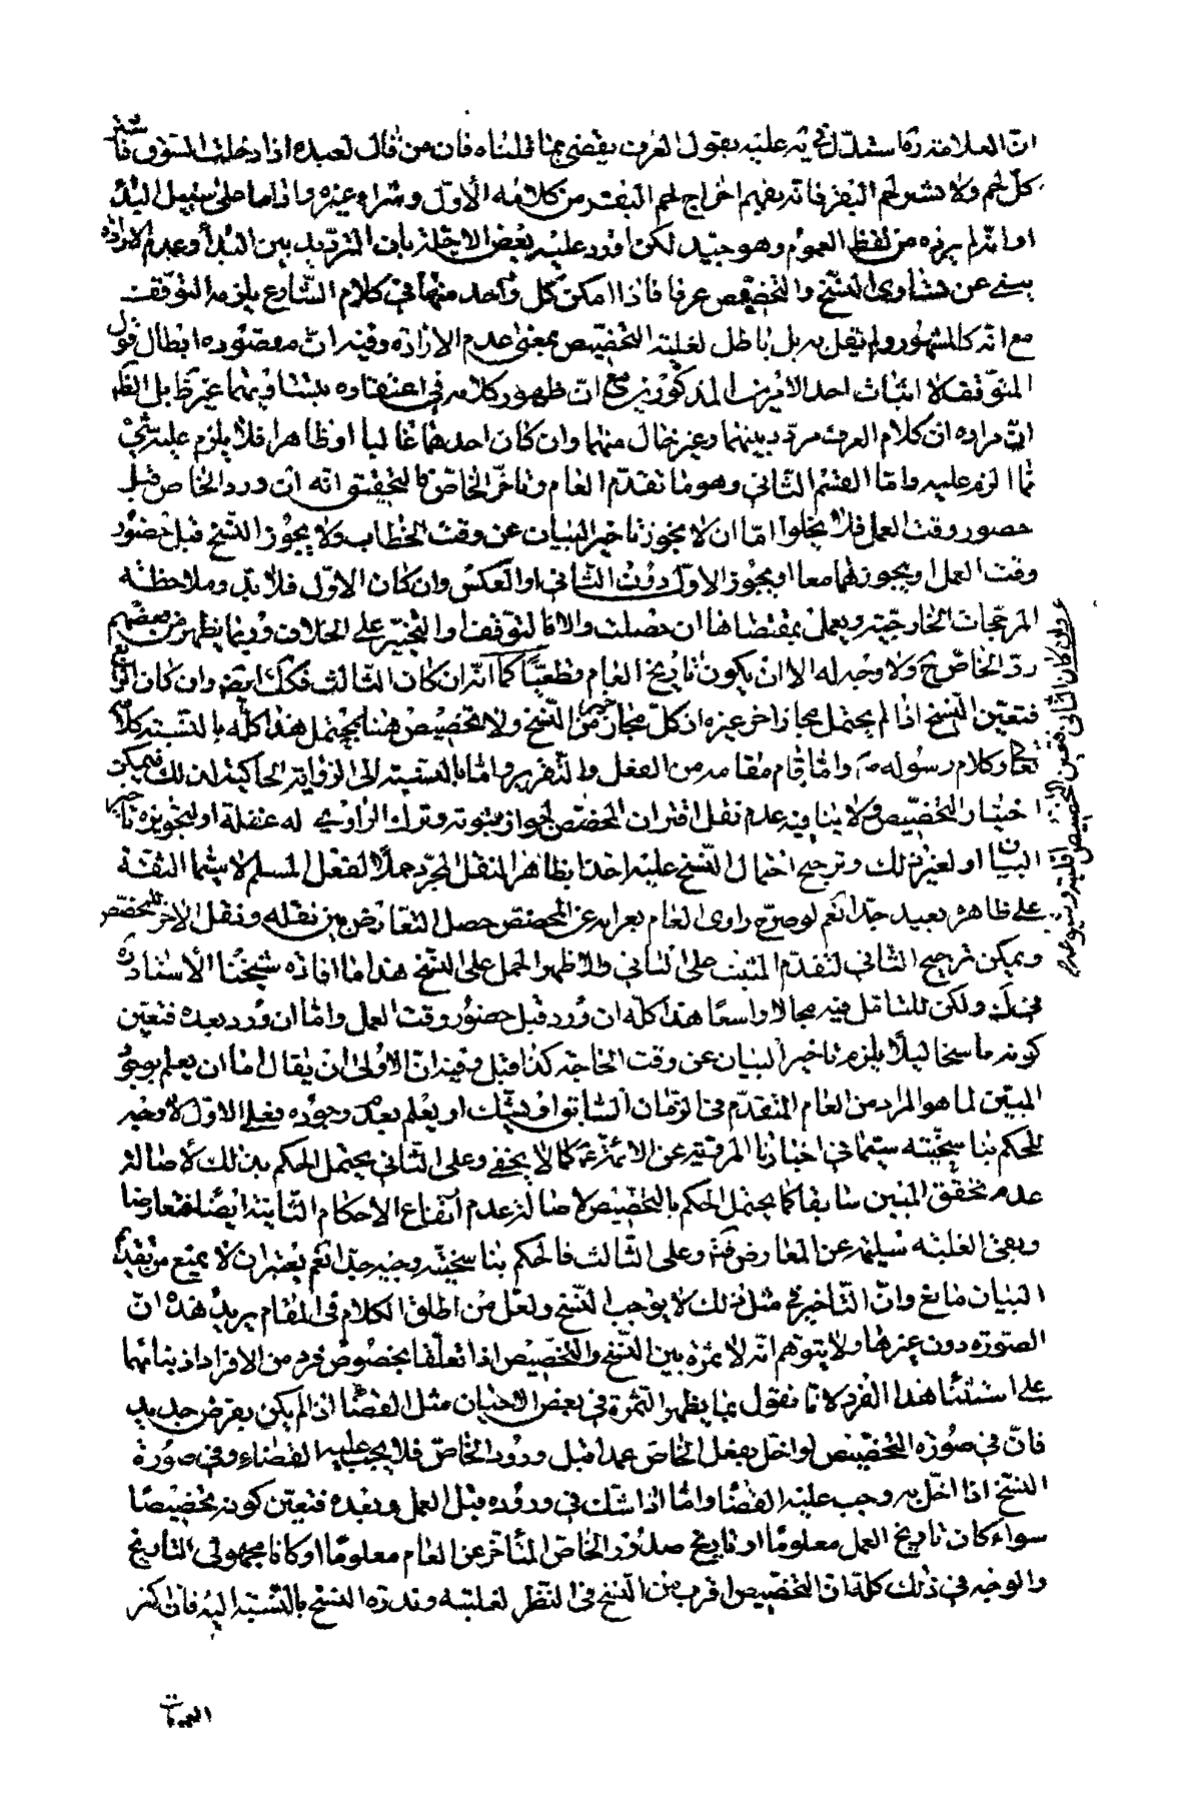 انّ العلامة ره استدلّ عليه بقول العرف يقضى بما قلناه فان من قال لعبده اذا دخلت السّوق فاشتر
كلّ لحم ولا تشتر لحم البقر فانّه يفهم اخراج لحم البقر من كلامه الأوّل وشراء غيره واذا ما على سبيل البدأ
او انّه لم يرده من لفظ العموم وهو جيّد لكن اورد عليه بعض الاجلة بان التّرديد بين البدأ وعدم الارادة
يبنى عن تساوى النّسخ والتخصيص عرفا فاذا امكن كلّ واحد منهما فى كلام الشّارع يلزمه التوقّف
مع انّه كالمشهور ولم يقل به بل باطل لغلبة التخصيص بمعنى عدم الارادة وفيه انّ مقصوده ابطال قول
المتوقّف لا اثبات احد الامرين المذكورين مع انّ ظهور كلامه فى اعتقاده بتساويهما غير ظ بل الظ
انّ مراده انّ كلام العرف مردّد بينهما وغير خال منهما وان كان احدهما غالبا او ظاهرا فلا يلزم عليه شئ
ممّا الزم عليه وامّا القسم الثّانى وهو ما تقدّم العام وتأخّر الخاصّ فالتحقيق انه ان ورد الخاص قبل
حضور وقت العمل فلا يخلوا امّا ان لا يجوز تاخير البيان عن وقت الخطاب ولا يجوز النّسخ قبل حضور
وقت العمل او يجوز هما معا او يجوز الاوّل دون الثّانى او العكس وان كان الاوّل فلا بدّ وملاحظة
المرجّحات الخارجيّة ويعمل بمقتضاها ان حصلت والا فالتوقّف او التّخيير على الخلاف وفيما يظهر من بعضهم
ردّ الخاصّ ح ولا وجه له الا ان يكون تاريخ العام قطعيّا كما انّه ان كان الثالث فكك ايضا وان كان الرّابع
فتعيّن النّسخ اذا لم يحتمل مجازا اخر غيره ان كلّ مجاز خير من النّسخ ولا تخصيص هنا يحتمل هذا كلّه بالنّسبة كلام
تعالى وكلام رسوله ص وامّا قام مقامه من الفعل والتّقرير وامّا بالنسبة الى الرّواية الحاكية لذلك فيمكن
اختيار التّخصيص ولا ينافيه عدم نقل اقتران المخصّص لجواز ثبوته وترك الرّاوى له غفلة او لتجويزه تأخير
البيان او لغير ذلك وترجيح احتمال النّسخ عليه اخذا بظاهر النقل المجرّد حملا لفعل المسلم لا سيّما الثقة
على ظاهره بعيد جدّا نعم لو صرّح راوى العام بعرائه عن المخصّص حصل التّعارض بين نقله ونقل الاخر للمخصّص
ويمكن ترجيح الثّانى لتقدّم المثبت على النّافى والاظهر الحمل على النّسخ هذا ما افاده شيخنا الأستاد ره
فى ولكن للتامّل فيه مجالا واسعا هذا كلّه ان ورد قبل حضور وقت العمل وامّا ان ورد بعده فتعيّن
كونه ناسخا لئلّا يلزم تاخير البيان عن وقت الحاجة كذا قيل وفيه انّ الاولى ان يقال امّا ان يعلم بوجود
المبيّن لما هو المراد من العام المتقدّم فى الزّمان السّابق او يشكّ او يعلم بعدم وجوده فعلى الاوّل لا وجه
للحكم بناسخيّته سيّما فى اخبارنا المرويّة عن الائمّة ع كما لا يخفى وعلى الثّانى يحتمل الحكم بذلك لأصالة
عدم تحقّق المبيّن سابقا كما يحتمل الحكم بالتّخصيص لاصالة عدم ارتفاع الاحكام الثّابتة ايضا فتعارضا
وبقى الغلبة سليمة عن المعارض وعلى الثّالث فالحكم بناسخيّته وجيه جدّا نعم يعتبر ان لا يمنع من تقديم
البيان مانع وانّ التّاخير فى مثل ذلك لا يوجب النّسخ ولعل من اطلق الكلام فى المقام يريد هذه انّ
الصّورة دون غيرها ولا يتوهّم انّه لا ثمرة بين النّسخ والتخصيص اذا تعلّقا بخصوص فرد من الافراد اذ بنائهما
على استثناء هذا الفرد لانّا نقول بما يظهر الثمرة فى بعض الاحيان مثل القضاء اذا لم يكن بفرض جديد
فانّ فى صورة التّخصيص لو اخل بفعل الخاصّ عمدا قبل ورود الخاصّ فلا يجب عليه القضاء وفى صورة
النّسخ اذا اخلّ به وجب عليه القضاء وامّا اذا شكّ فى وروده قبل العمل وبعده فتعيّن كونه تخصيصا
سواء كان تاريخ العمل معلوما او تاريخ صدور الخاصّ المتأخّر عن العام معلوما او كانا مجهولى التاريخ
والوجه فى ذلك كلّه انّ التخصيص اقرب من النّسخ فى النّظر لغلبته وندرة النسخ بالنّسبة اليه فان اكثر
وان كان الثّانى فتعيّن التخصيص لغلبته وشيوعه م
العمومات